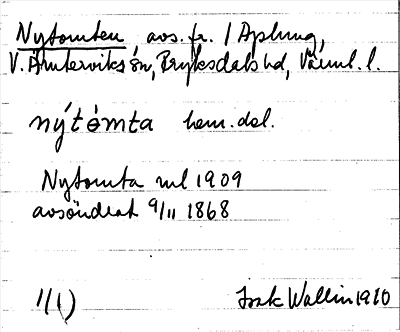 Nytomten, avs. fr. 1 Aplung,
V. Ämterviks sn, Fryksdals hd, Värml. l.
nýtòmta hem. dsl.
Nytomta ml 1909
avsöndrat 9/11 1868
1(1) Isak Wallin 1910